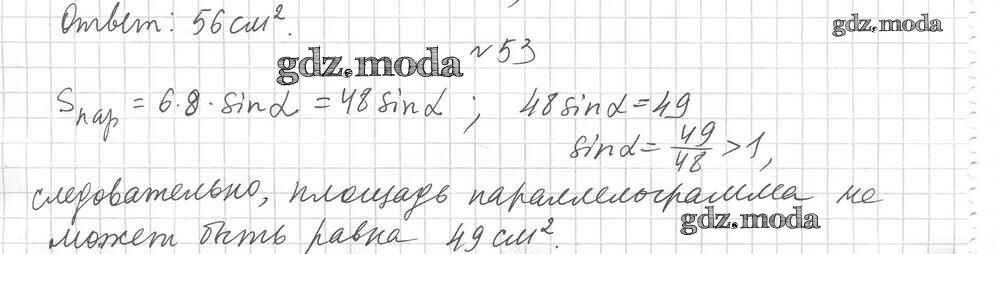 Ответ: 56 см².
gdz.moda
gdz.moda № 53
Sпар = 6·8·sinα = 48 sinα ; 48 sinα = 49
sinα = 49/48 > 1,
следовательно, площадь параллелограмма не
gdz.moda
может быть равна 49 см².